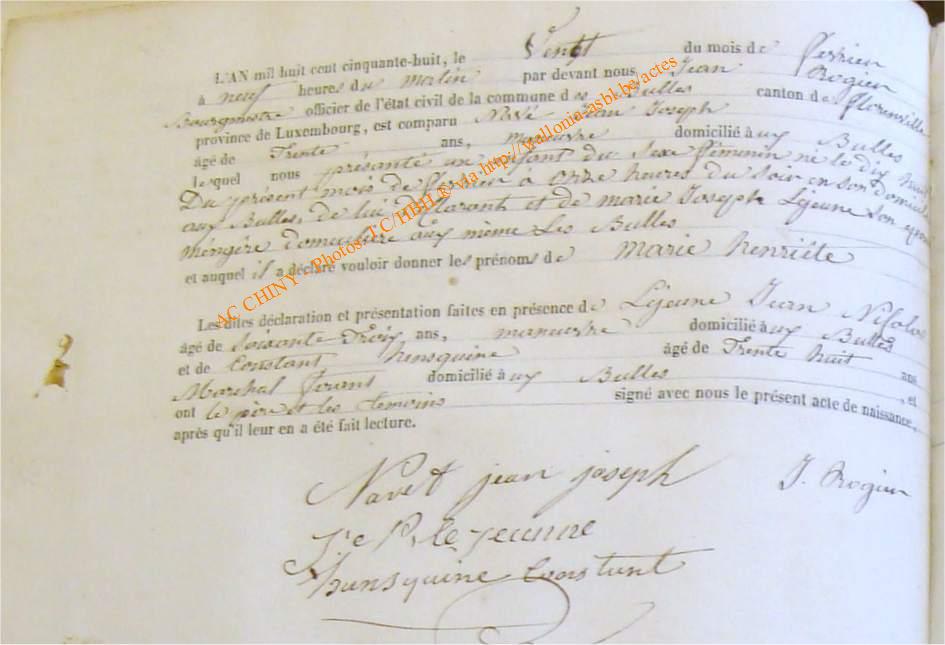 L'AN mil huit cent cinquante-huit, le Vingt du mois de fevrier
à neuf heures du matin par devant nous Jean Rogier
Bourgmestre officier de l'état civil de la commune des Bulles canton de florenville
province de Luxembourg, est comparu Navé Jean Joseph
âgé de Trente ans, manuvre domicilié aux Bulles
lequel nous présanté un enfant du sexe féminin né le dix huit
Du présent mois de fevrier à onze heures du soir en son domicile
aux Bulles, de lui déclarant et de marie Joseph Lejeune son epouse
méngère domiciliée aux même Les Bulles
et auquel il a déclaré vouloir donner les prénoms de marie henriéte
Les dites déclaration et présentation faites en présence de Lejeune Jean Nicolas
âgé de Soixante Trois ans, manuvre domicilié aux Bulles
et de Constant hensquine âgé de Trente huit ans
Marchal ferant domicilié aux Bulles , et
ont le père et les temoins signé avec nous le présent acte de naissance,
après qu'il leur en a été fait lecture.
Navet jean joseph J. Rogier
le jeunne
hansquine Constant
AC CHINY - Photos J.C HBH © via http://wallonia-asbl.be/actes